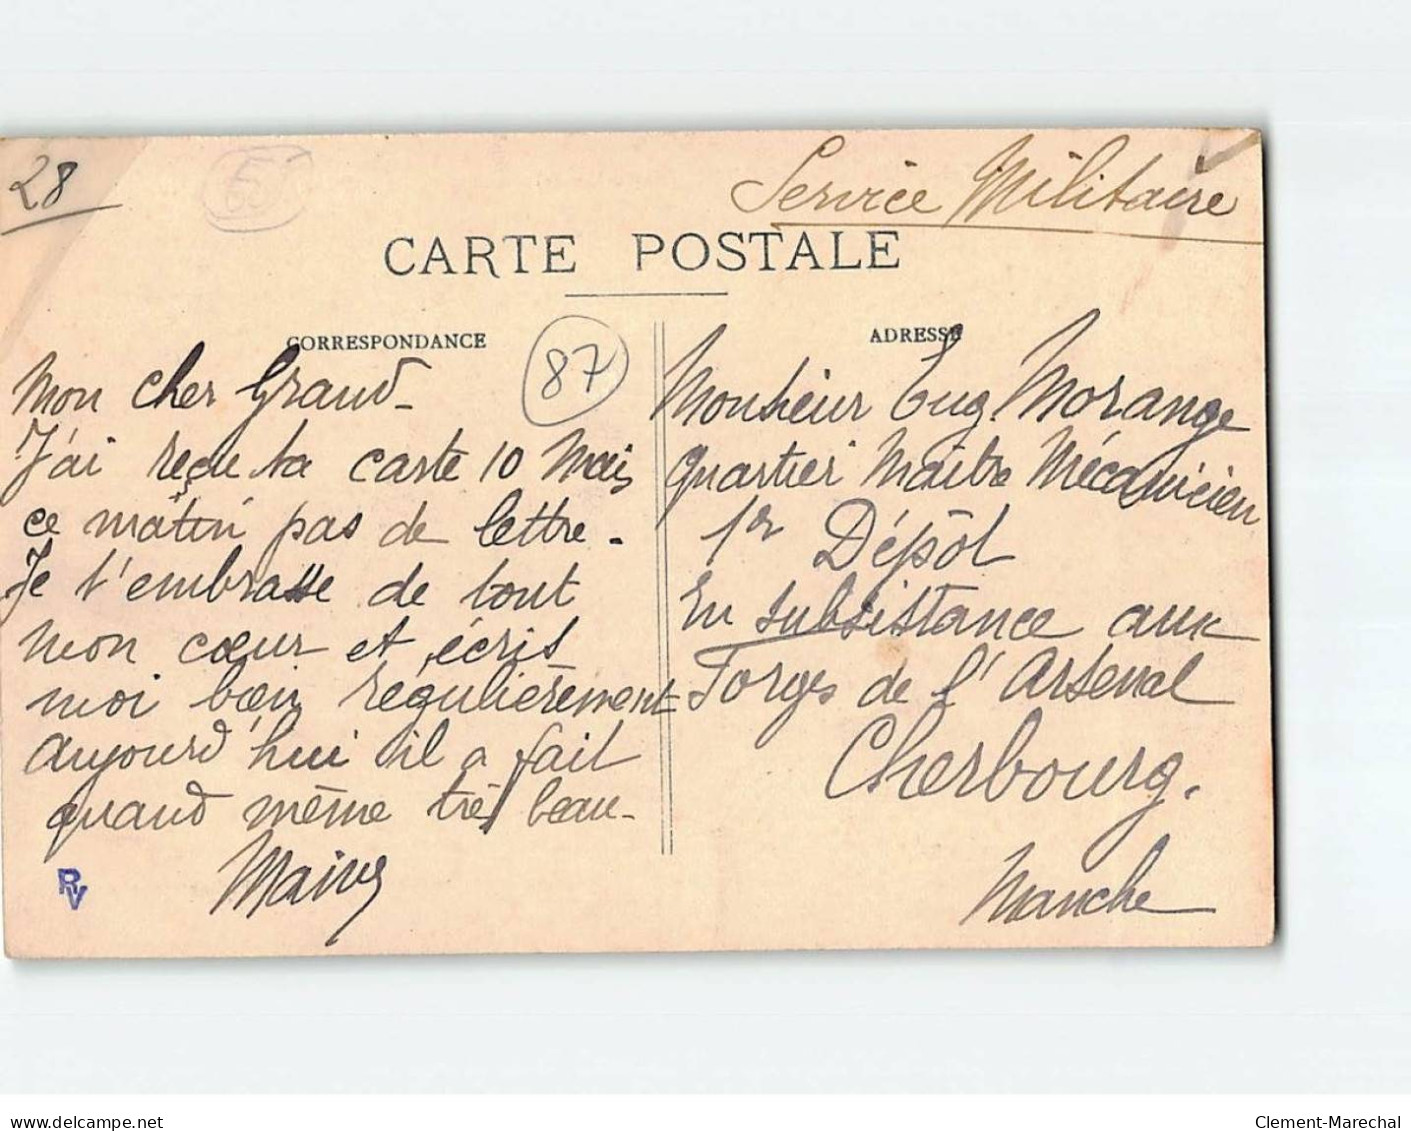 28
Service Militaire
CARTE POSTALE
CORRESPONDANCE
87
ADRESSE
Mon cher Grand_
J'ai reçu ta carte 10 Mais
ce matin pas de lettre.
Je t'embrasse de tout
mon cœur et écris
moi bien régulièrement
aujourd'hui il a fait
quand même très beau_
RV
Monsieur Eug. Morange
Quartier Maitre Mécanicien
1er Dépôt
En subsistance aux
Forges de l'Arsenal
Cherbourg.
Manche
www.delcampe.net
Clement-Marechal